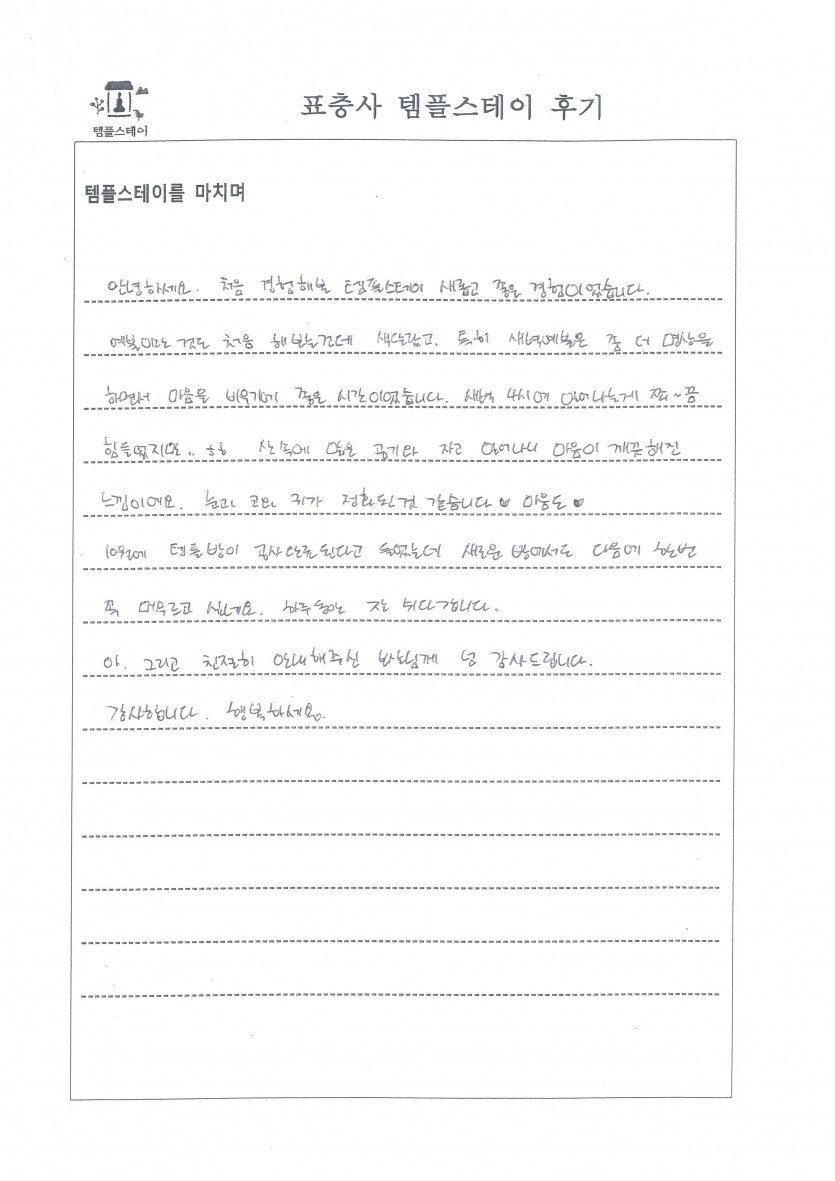 템플스테이
표충사 템플스테이 후기
템플스테이를 마치며
안녕하세요. 처음 경험해본 템플스테이 새롭고 좋은 경험이었습니다.
예불이라는것도 처음 해봤는데 색다랐고, 특히 새벽예불은 좀 더 명상을
하면서 마음을 비우기에 좋은 시간이었습니다. 새벽 4시에 일어나는게 쪼~끔
힘들었지만.. ㅎㅎ 산속에 맑은 공기와 자고 일어나니 마음이 깨끗해진
느낌이에요. 눈과 코와 귀가 정화된것 같습니다♥ 마음도♥
10월에 템플방이 공사 완료된다고 들었는데 새로운 방에서도 다음에 한번
꼭 머무르고 싶네요. 하루동안 잘 쉬다갑니다.
아. 그리고 친절히 안내해주신 보살님께 넘 감사드립니다.
감사합니다. 행복하세용.